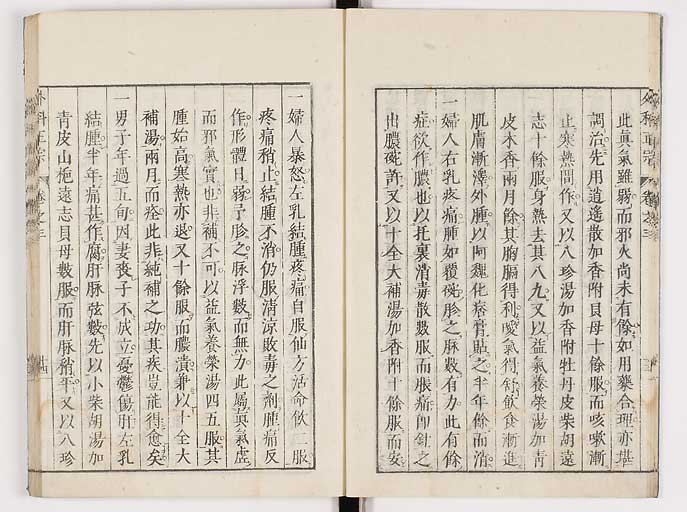 此眞氣雖弱而邪火尚未有餘如用藥合理亦堪
調治先用逍遙散加香附貝母十餘服而咳嗽漸
止寒熱間作又以八珍湯加香附牡丹皮柴胡遠
志十餘服身熱去其八九又以益氣養榮湯加青
皮木香兩月餘其胸膈得利嗳氣得舒飲食漸進
肌膚漸澤外腫以阿魏化痞膏貼之半年餘而消
一婦人右乳疼痛腫如覆碗胗之脉數有力此有餘
症欲作膿也以托裏消毒散數服而脹痛即針之
出膿碗許又以十全大補湯加香附十餘服而安
一婦人暴怒左乳結腫疼痛自服仙方活命飲二服
疼痛稍止結腫不消仍服清涼敗毒之劑腫痛反
作形體日弱予胗之脉浮數而無力此屬眞氣虛
而邪氣實也非補不可以益氣養榮湯四五服其
腫始高寒熱亦退又十餘服而膿潰兼以十全大
補湯兩月而痊此非純補之功其疾豈能得愈矣
一男子年過五旬因妻喪子不成立憂鬱傷肝左乳
結腫半年痛甚作腐肝脉弦數先以小柴胡湯加
青皮山梔遠志貝母數服而肝脉稍平又以八珍
外科正宗 卷之三